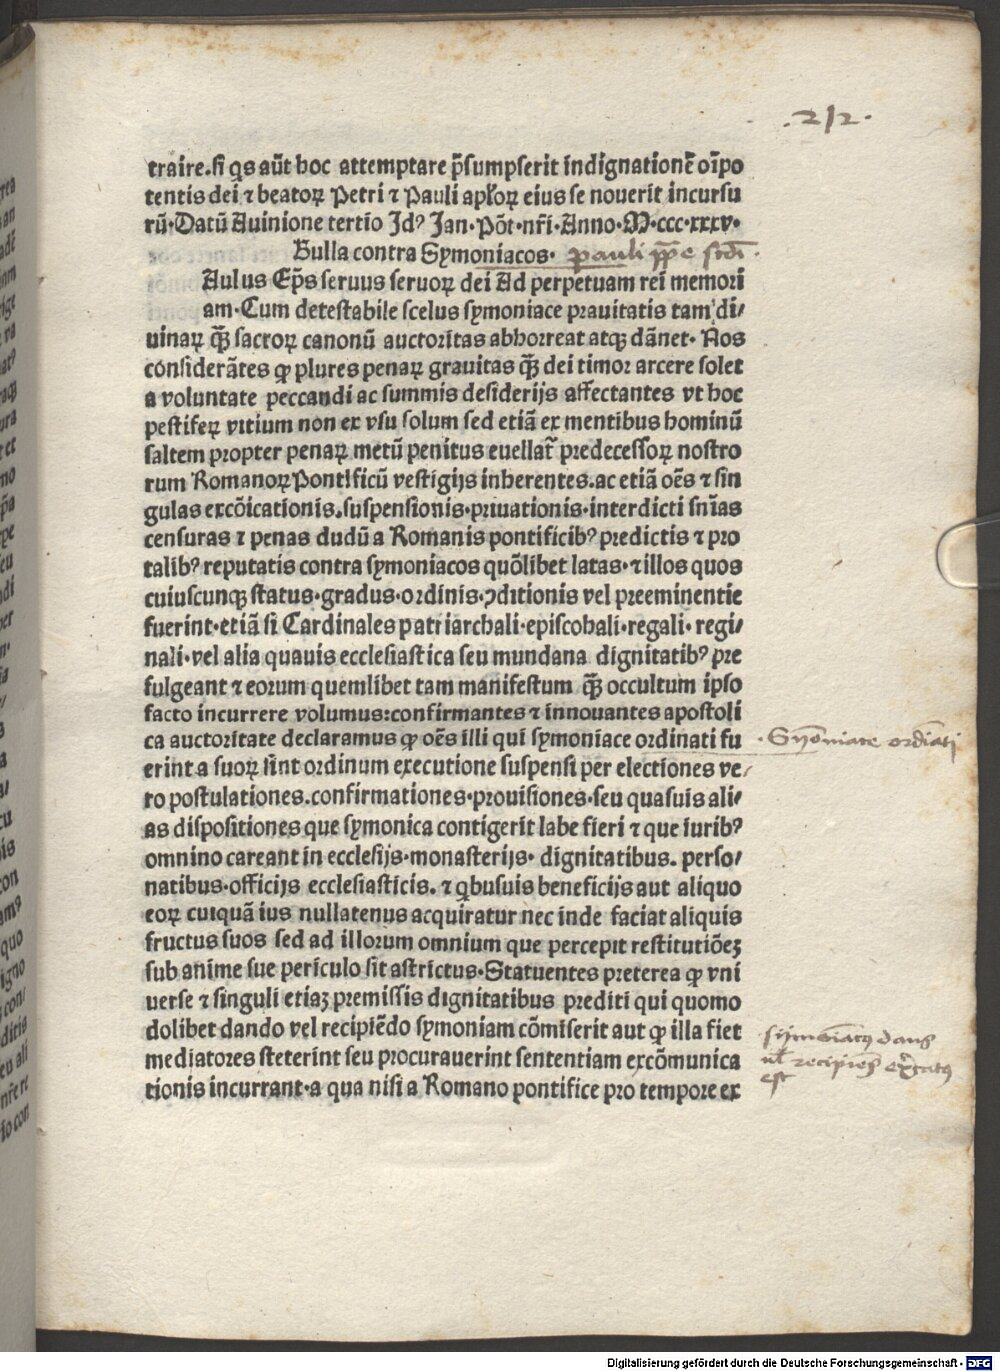 .212.
traire.si q̃s aūt hoc attemptare p̃sumpserit indignationē oīpo
tentis dei ⁊ beatoꝝ Petri ⁊ Pauli apl'oꝝ eius se nouerit incursu
rū·Datū Auinione tertio Jdꝰ Jan·Pōt·nr̄i·Anno·M·ccc·xxxv·
Bulla contra Symoniacos· pauli pp̄e scd̄i .
Aulus Ep̄s seruus seruoꝝ dei Ad perpetuam rei memori
am·Cum detestabile scelus symoniace prauitatis tam di/
uinaꝝ q̄ꝫ sacroꝝ canonū auctoritas abhorreat atqꝫ dānet· Nos
considerātes ꝙ plures penaꝝ grauitas q̄ꝫ dei timor arcere solet
a voluntate peccandi ac summis desiderijs affectantes vt hoc
pestifeꝝ vitium non ex vsu solum sed etiā ex mentibus hominū
saltem propter penaꝝ metū penitus euellat̄ predecessoꝝ nostro
rum Romanoꝝ Pontificū vestigijs inherentes.ac etiā oēs ⁊ sin
gulas excōicationis.suspensionis·priuationis·interdicti sn̄ias
censuras ⁊ penas dudū a Romanis pontificibꝰ predictis ⁊ pro
talibꝰ reputatis contra symoniacos quōlibet latas·⁊ illos quos
cuiuscunqꝫ status·gradus·ordinis·ꝯditionis vel preeminentie
fuerint·etiā si Cardinales patriarchali·episcobali·regali·regi/
nali·vel alia quauis ecclesiastica seu mundana dignitatibꝰ pre
fulgeant ⁊ eorum quemlibet tam manifestum q̄ꝫ occultum ipso
facto incurrere volumus:confirmantes ⁊ innouantes apostoli
ca auctoritate declaramus ꝙ oēs illi qui symoniace ordinati fu
·Symōniace ordīati
erint a suoꝝ sint ordinum executione suspensi per electiones ve/
ro postulationes.confirmationes·prouisiones·seu quasuis ali/
as dispositiones que symonica contigerit labe fieri ⁊ que iuribꝰ
omnino careant in ecclesijs·monasterijs· dignitatibus. perso/
natibus·officijs ecclesiasticis. ⁊ qͥbusuis beneficijs aut aliquo
eoꝝ cuiquā ius nullatenus acquiratur nec inde faciat aliquis
fructus suos sed ad illorum omnium que percepit restitutiōeꝫ
sub anime sue periculo sit astrictus·Statuentes preterea ꝙ vni
uerse ⁊ singuli etiaꝫ premissis dignitatibus prediti qui quomo
dolibet dando vel recipiēdo symoniam cōmiserit aut ꝙ illa fiet
mediatores steterint seu procurauerint sententiam excōmunica
tionis incurrant·a qua nisi a Romano pontifice pro tempore ex
symoniacꝰ dans
ul' recipiens exc̄atꝰ
est
Digitalisierung gefördert durch die Deutsche Forschungsgemeinschaft · DFG